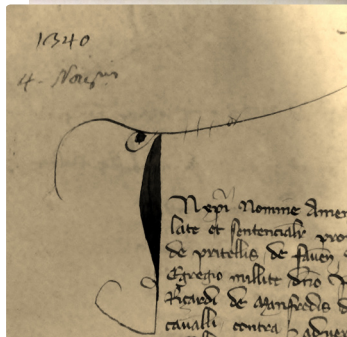 1340
4.
N xpi Nomine Amen
late et sentencialr pro
de pritellis de faven
Egregio millite dno
Ricardi de Manfredis d
cavalli contra adver